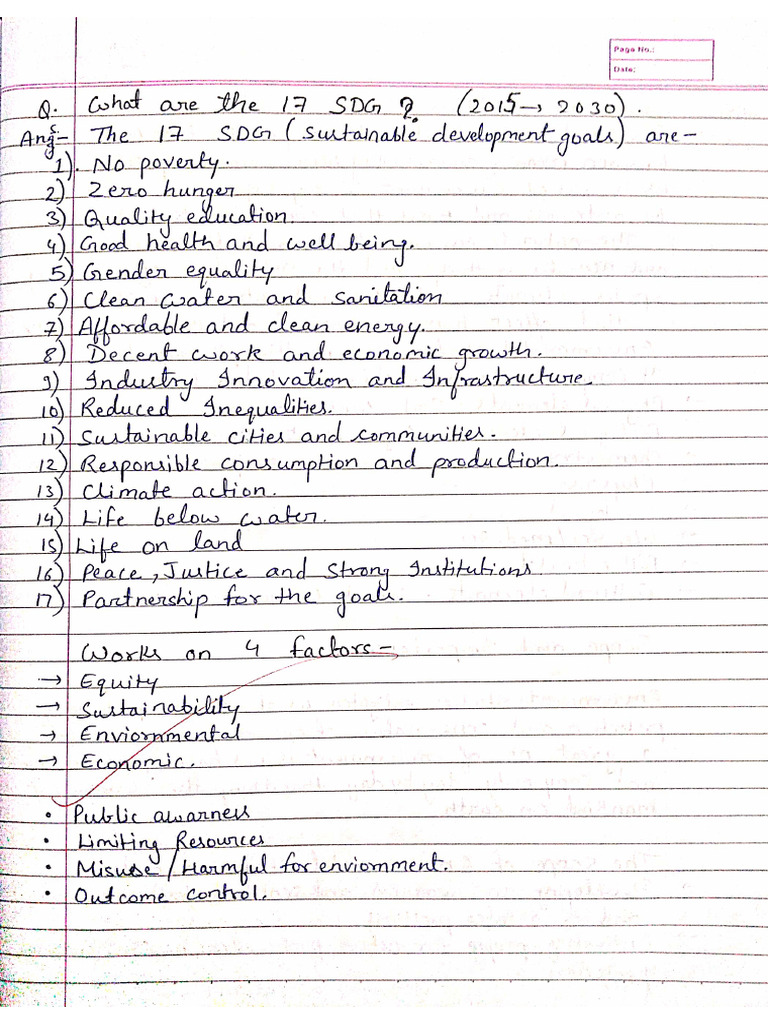 Page No.:
Date:
Q. What are the 17 SDG ? (2015 → 2030).
Ans- The 17 SDG (Sustainable development goals) are -
1). No poverty.
2) Zero hunger
3) Quality education.
4) Good health and well being.
5) Gender equality
6) Clean water and sanitation
7) Affordable and clean energy.
8) Decent work and economic growth.
9) Industry Innovation and Infrastructure.
10) Reduced Inequalities.
11) Sustainable cities and communities.
12) Responsible consumption and production.
13) Climate action.
14) Life below water.
15) Life on land
16) Peace, Justice and Strong Institutions
17) Partnership for the goals.
Works on 4 factors -
→ Equity
→ Sustainability
→ Enviornmental
→ Economic.
• Public awarness
• Limiting Resources
• Misuse / Harmful for enviornment.
• Outcome control.